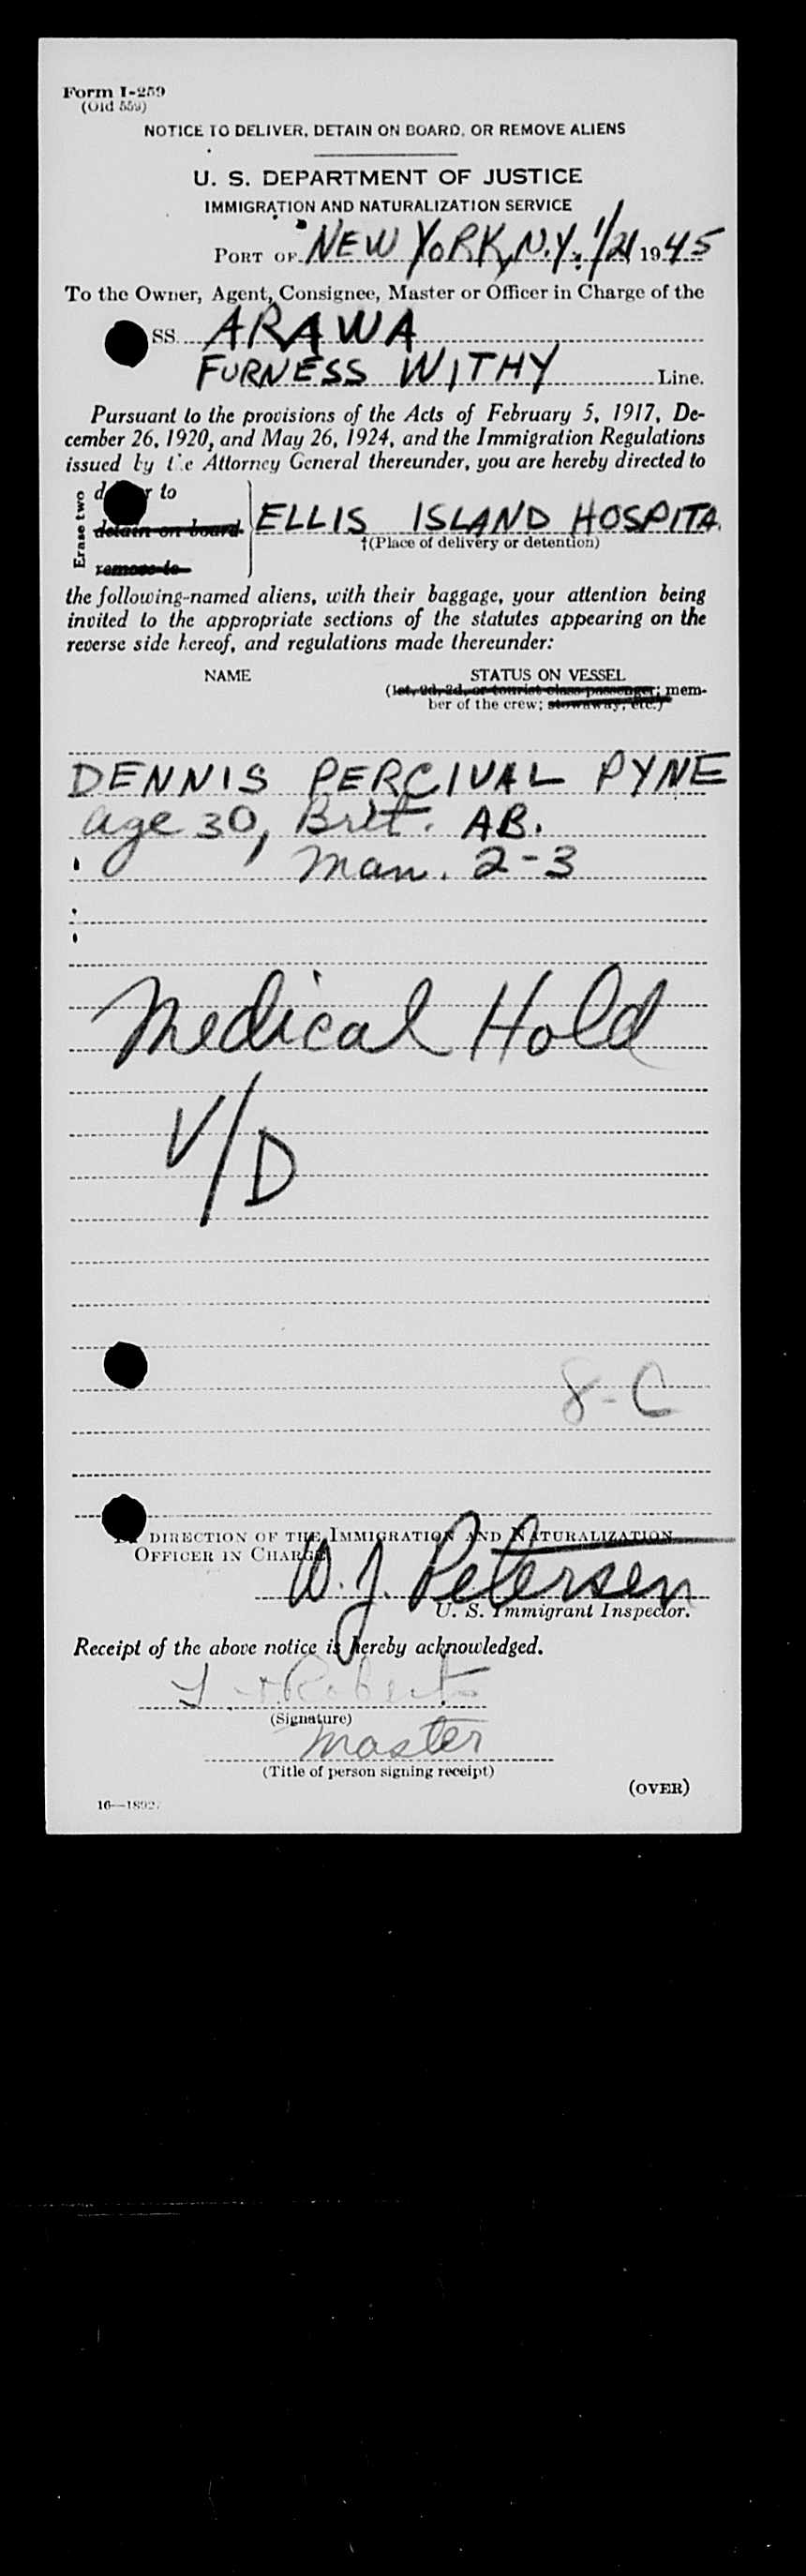 Form I-259
(Old 559)
NOTICE TO DELIVER, DETAIN ON BOARD, OR REMOVE ALIENS
U. S. DEPARTMENT OF JUSTICE
IMMIGRATION AND NATURALIZATION SERVICE
PORT OF NEW YORK, N.Y. 1/21 1945
To the Owner, Agent, Consignee, Master or Officer in Charge of the
SS. ARAWA
FURNESS WITHY Line.
Pursuant to the provisions of the Acts of February 5, 1917, De-
cember 26, 1920, and May 26, 1924, and the Immigration Regulations
issued by the Attorney General thereunder, you are hereby directed to
Erase two
to
detain on board
remove to
ELLIS ISLAND HOSPITA
†(Place of delivery or detention)
the following-named aliens, with their baggage, your attention being
invited to the appropriate sections of the statutes appearing on the
reverse side hereof, and regulations made thereunder:
NAME STATUS ON VESSEL
(1st, 2d, 3d, or tourist class passenger; mem-
ber of the crew; stowaway, etc.)
DENNIS PERCIVAL PYNE
age 30, Brit. AB.
Man. 2-3
Medical Hold
V/D
8-C
DIRECTION OF THE IMMIGRATION AND NATURALIZATION
OFFICER IN CHARGE
W. J. Petersen
U. S. Immigrant Inspector.
Receipt of the above notice is hereby acknowledged.
Roberts
(Signature)
Master
(Title of person signing receipt)
(OVER)
16—18927